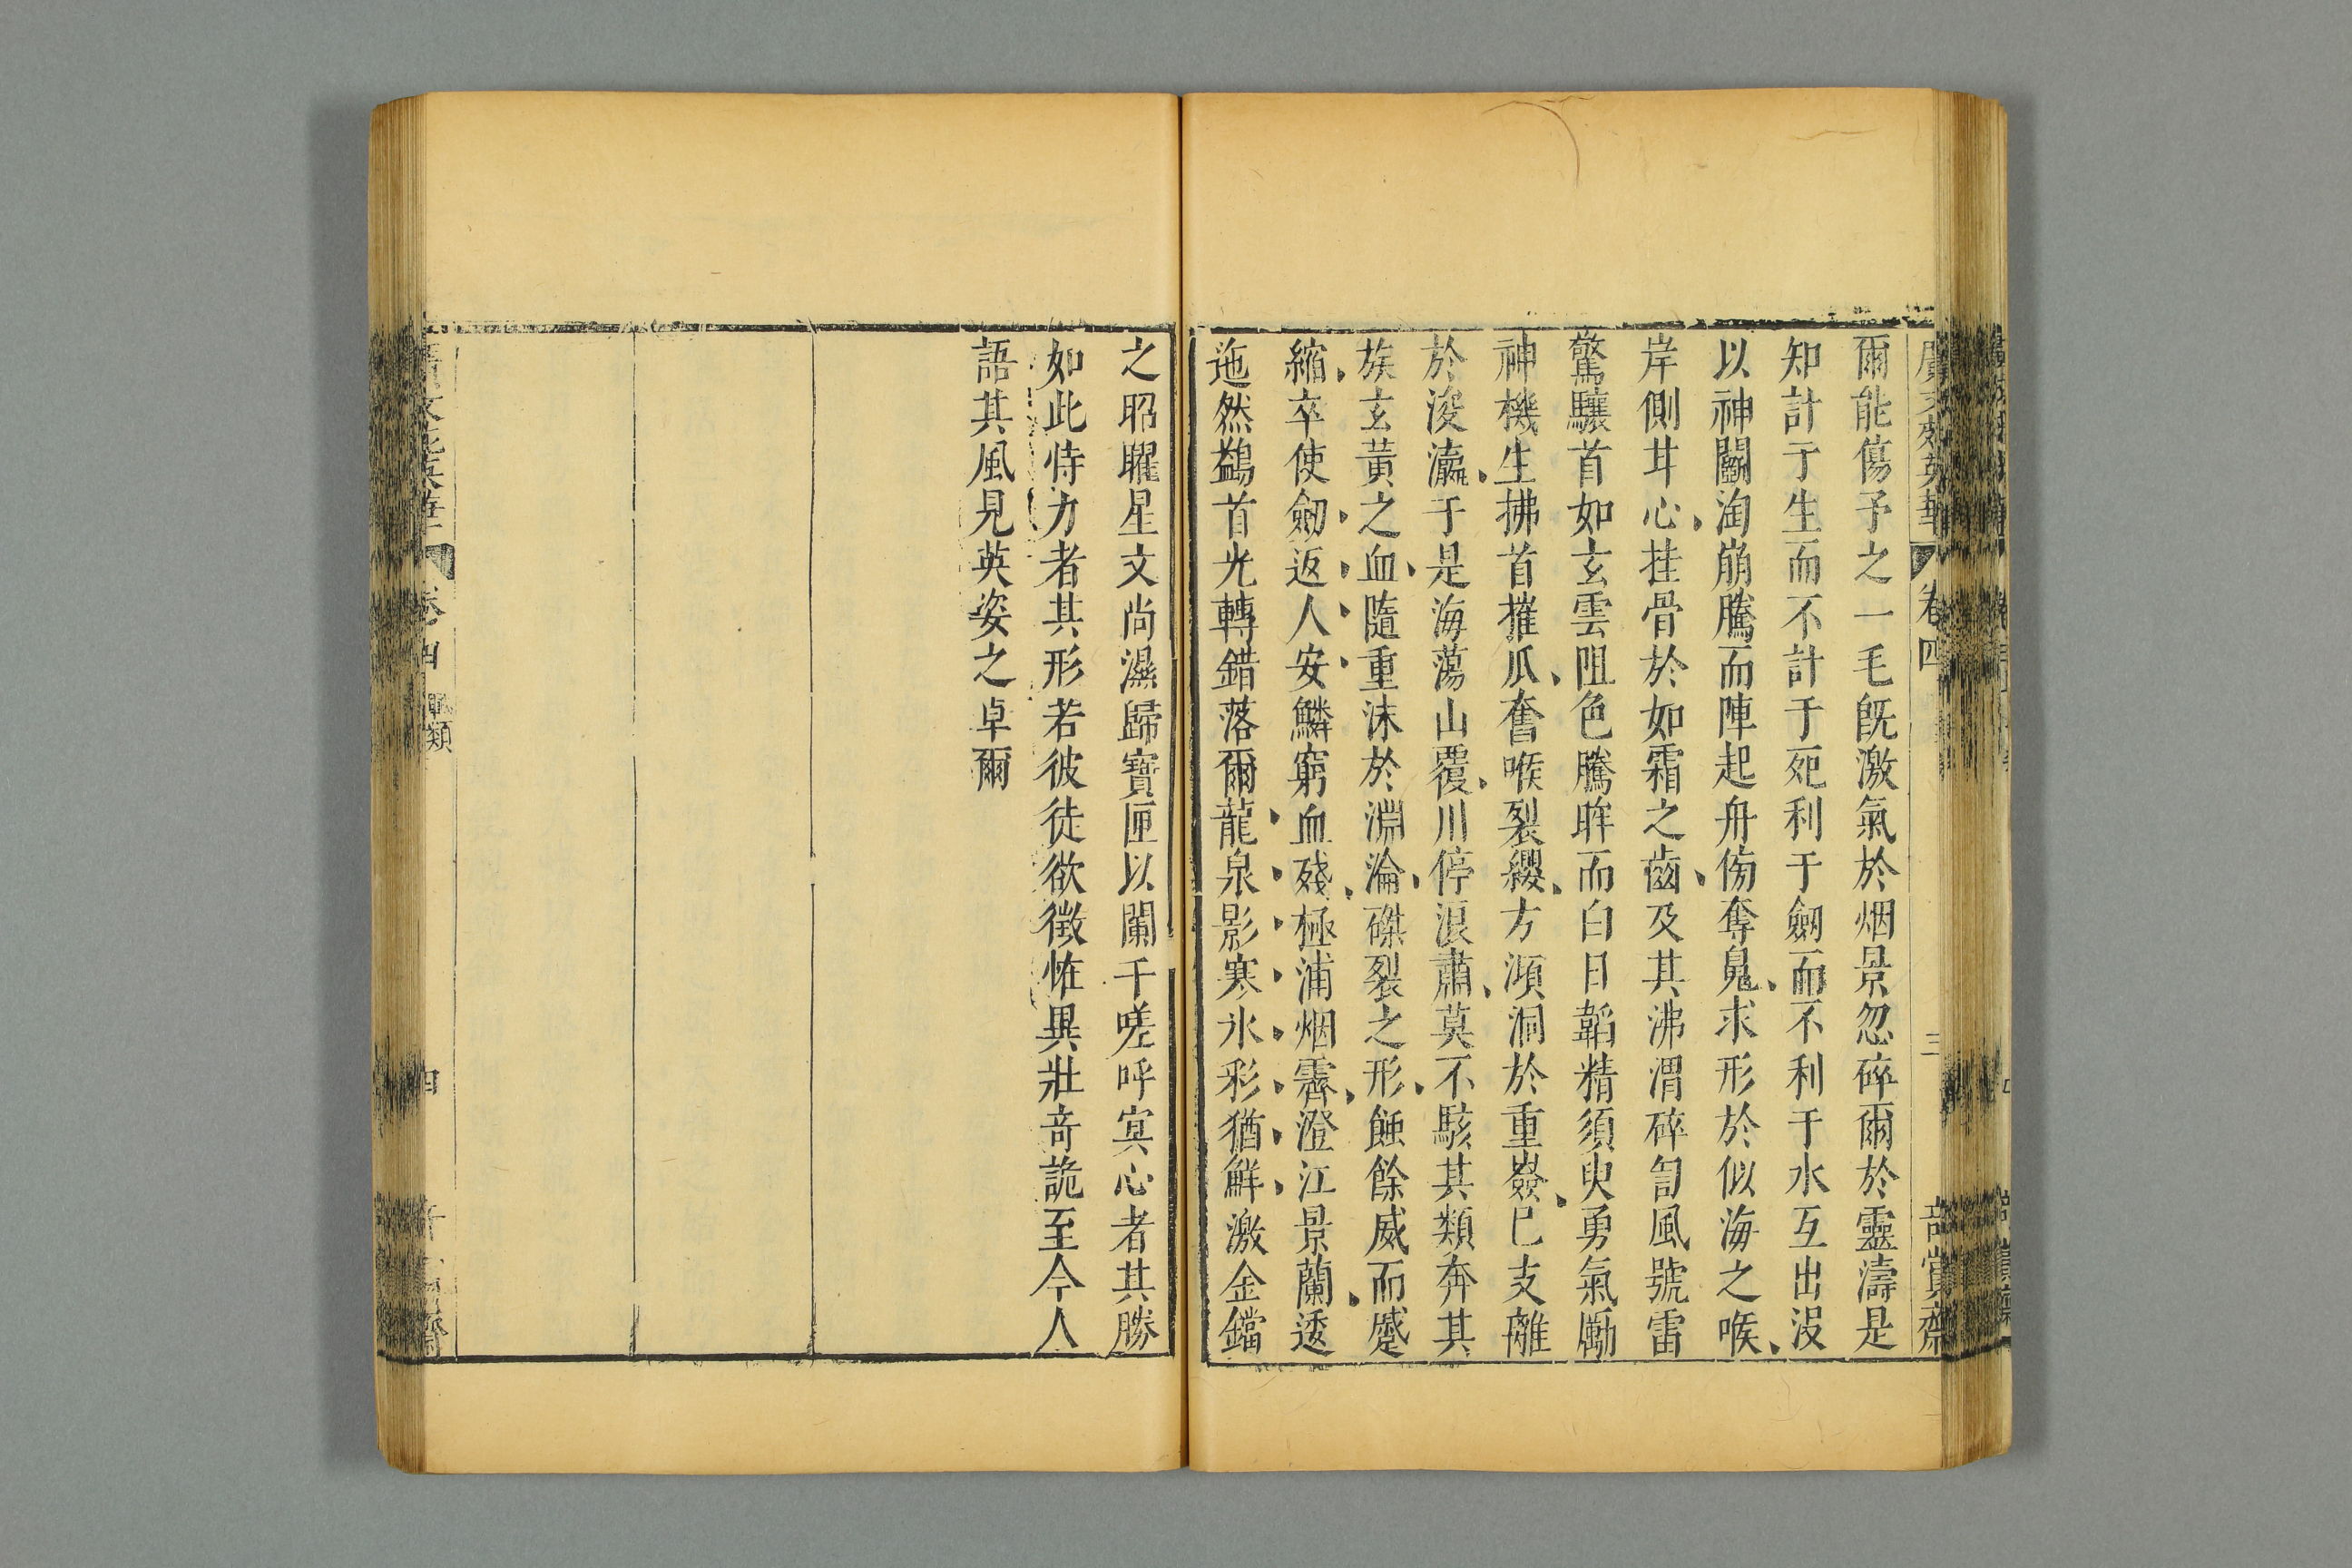 廣文苑英華 卷四 三 奇賞齋
爾能傷予之一毛旣激氣於烟景忽碎爾於靈濤是
知計于生而不計于死利于劒而不利于水互出沒
以神鬭洶崩騰而陣起舟傍奪鬼求形於似海之喉
岸側甘心挂骨於如霜之齒及其沸渭碎訇風號雷
驚驤首如玄雲阻色騰眸而白日韜精須臾勇氣勵
神機生拂首摧爪奮喉裂纓方澒洞於重巘已支離
於浚瀛于是海蕩山覆川停浪肅莫不駭其類奔其
族玄黃之血隨重沫於淵淪磔裂之形餘威而蹙
縮卒使劒返人安鱗窮血殘極浦烟霽澄江景蘭逶
迤然鷁首光轉錯落爾龍泉影寒氷彩猶鮮激金鐺
之昭曜星文尚濕歸寶匣以闌干嗟呼寘心者其勝
如此恃力者其形若彼徒欲徵恠異壯奇詭至今人
語其風見英姿之卓爾
卷四 類 四 齋